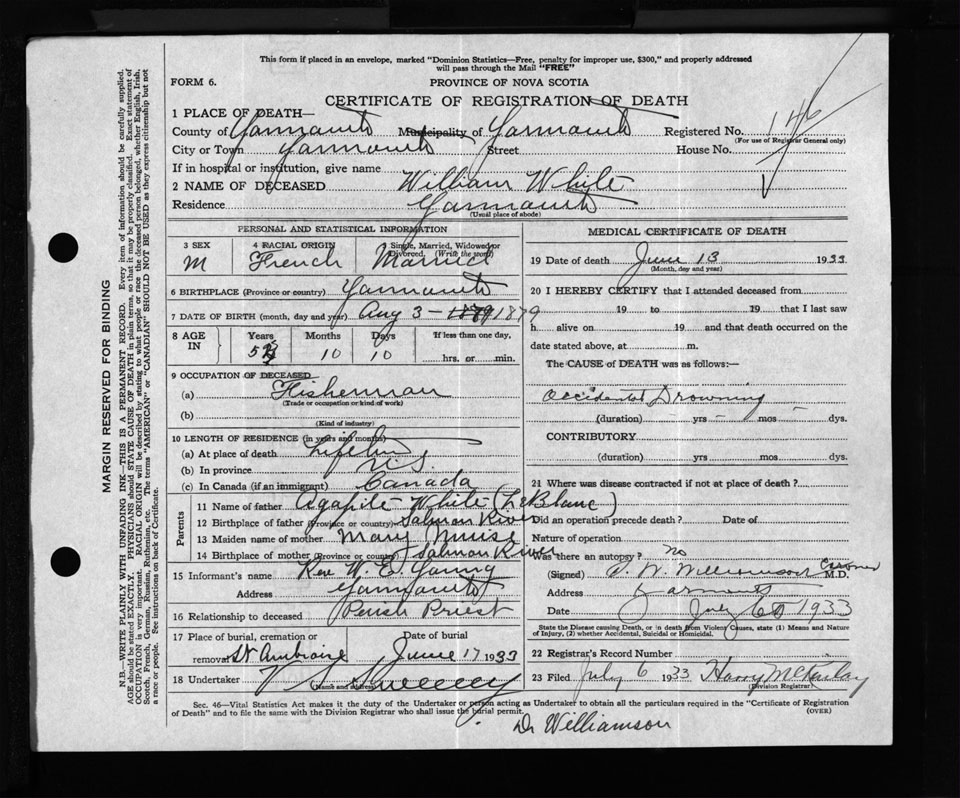 This form if placed in an envelope, marked "Dominion Statistics—Free, penalty for improper use, $300," and properly addressed
will pass through the Mail "FREE"
FORM 6.
PROVINCE OF NOVA SCOTIA
CERTIFICATE OF REGISTRATION OF DEATH
1 PLACE OF DEATH—
County of Yarmouth Municipality of Yarmouth Registered No. 146
(For use of Registrar General only)
City or Town Yarmouth Street House No.
If in hospital or institution, give name
2 NAME OF DECEASED William White
Residence Yarmouth
(Usual place of abode)
PERSONAL AND STATISTICAL INFORMATION
3 SEX 4 RACIAL ORIGIN Single, Married, Widowed or
Divorced. (Write the word)
M French Married
6 BIRTHPLACE (Province or country) Yarmouth
7 DATE OF BIRTH (month, day and year) Aug 3 - 1879 1879
8 AGE IN Years Months Days If less than one day,
53 10 10 hrs. or min.
9 OCCUPATION OF DECEASED
(a) Fisherman
(Trade or occupation or kind of work)
(b)
(Kind of industry)
10 LENGTH OF RESIDENCE (in years and months)
(a) At place of death Lifetime
(b) In province N.S.
(c) In Canada (if an immigrant) Canada
Parents
11 Name of father Agapite White (LeBlanc)
12 Birthplace of father (Province or country) Salmon River
13 Maiden name of mother Mary Muise
14 Birthplace of mother (Province or country) Salmon River
15 Informant's name Rev W. E. Young
Address Yarmouth
16 Relationship to deceased Parish Priest
17 Place of burial, cremation or Date of burial
removal St Ambroise June 17 1933
18 Undertaker V S Sweeney
(Name and address)
MEDICAL CERTIFICATE OF DEATH
19 Date of death June 13 1933
(Month, day and year)
20 I HEREBY CERTIFY that I attended deceased from
19 to 19 that I last saw
h alive on 19 and that death occurred on
date stated above, at m.
The CAUSE OF DEATH was as follows:—
Accidental Drowning
(duration) yrs – mos – dys.
CONTRIBUTORY
(duration) yrs. mos. dys.
21 Where was disease contracted if not at place of death?
Did an operation precede death? Date of
Nature of operation
Was there an autopsy? no
(Signed) S. W. Williamson Coroner M.D.
Address Yarmouth
Date July 6 1933
State the Disease causing Death, or in death from Violent Causes, state (1) Means and Nature
of Injury, (2) whether Accidental, Suicidal or Homicidal.
22 Registrar's Record Number
23 Filed July 6 1933 Harry McKinlay
(Division Registrar)
Sec. 46—Vital Statistics Act makes it the duty of the Undertaker or person acting as Undertaker to obtain all the particulars required in the "Certificate of Registration
of Death" and to file the same with the Division Registrar who shall issue the burial permit. (OVER)
Dr Williamson
MARGIN RESERVED FOR BINDING
N.B.—WRITE PLAINLY WITH UNFADING INK—THIS IS A PERMANENT RECORD. Every item of information should be carefully supplied.
AGE should be stated EXACTLY. PHYSICIANS should STATE CAUSE OF DEATH in plain terms, so that it may be properly classified. Exact statement of
OCCUPATION is very important. RACIAL ORIGIN will be described by stating to what people or race the deceased person belonged, whether English, Irish,
Scotch, French, German, Russian, Ruthenian, etc. The terms "AMERICAN" or "CANADIAN" SHOULD NOT BE USED as they express citizenship but not
a race or people. See instructions on back of Certificate.